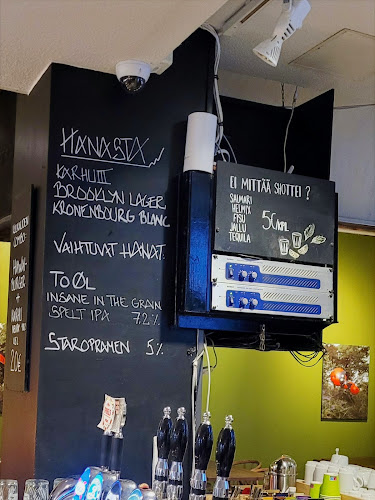 HANASTA
KARHU III
BROOKLYN LAGER
KRONENBOURG BLANC
VAIHTUVAT HANAT:
TO ØL
INSANE IN THE GRAIN
SPELT IPA 7.2%
STAROPRAMEN 5%
EI MITTÄÄ SHOTTEI?
SALMARI
HELMIX
FISU
JALLU
TEQUILA
5€/KPL
BURGER
+
20€